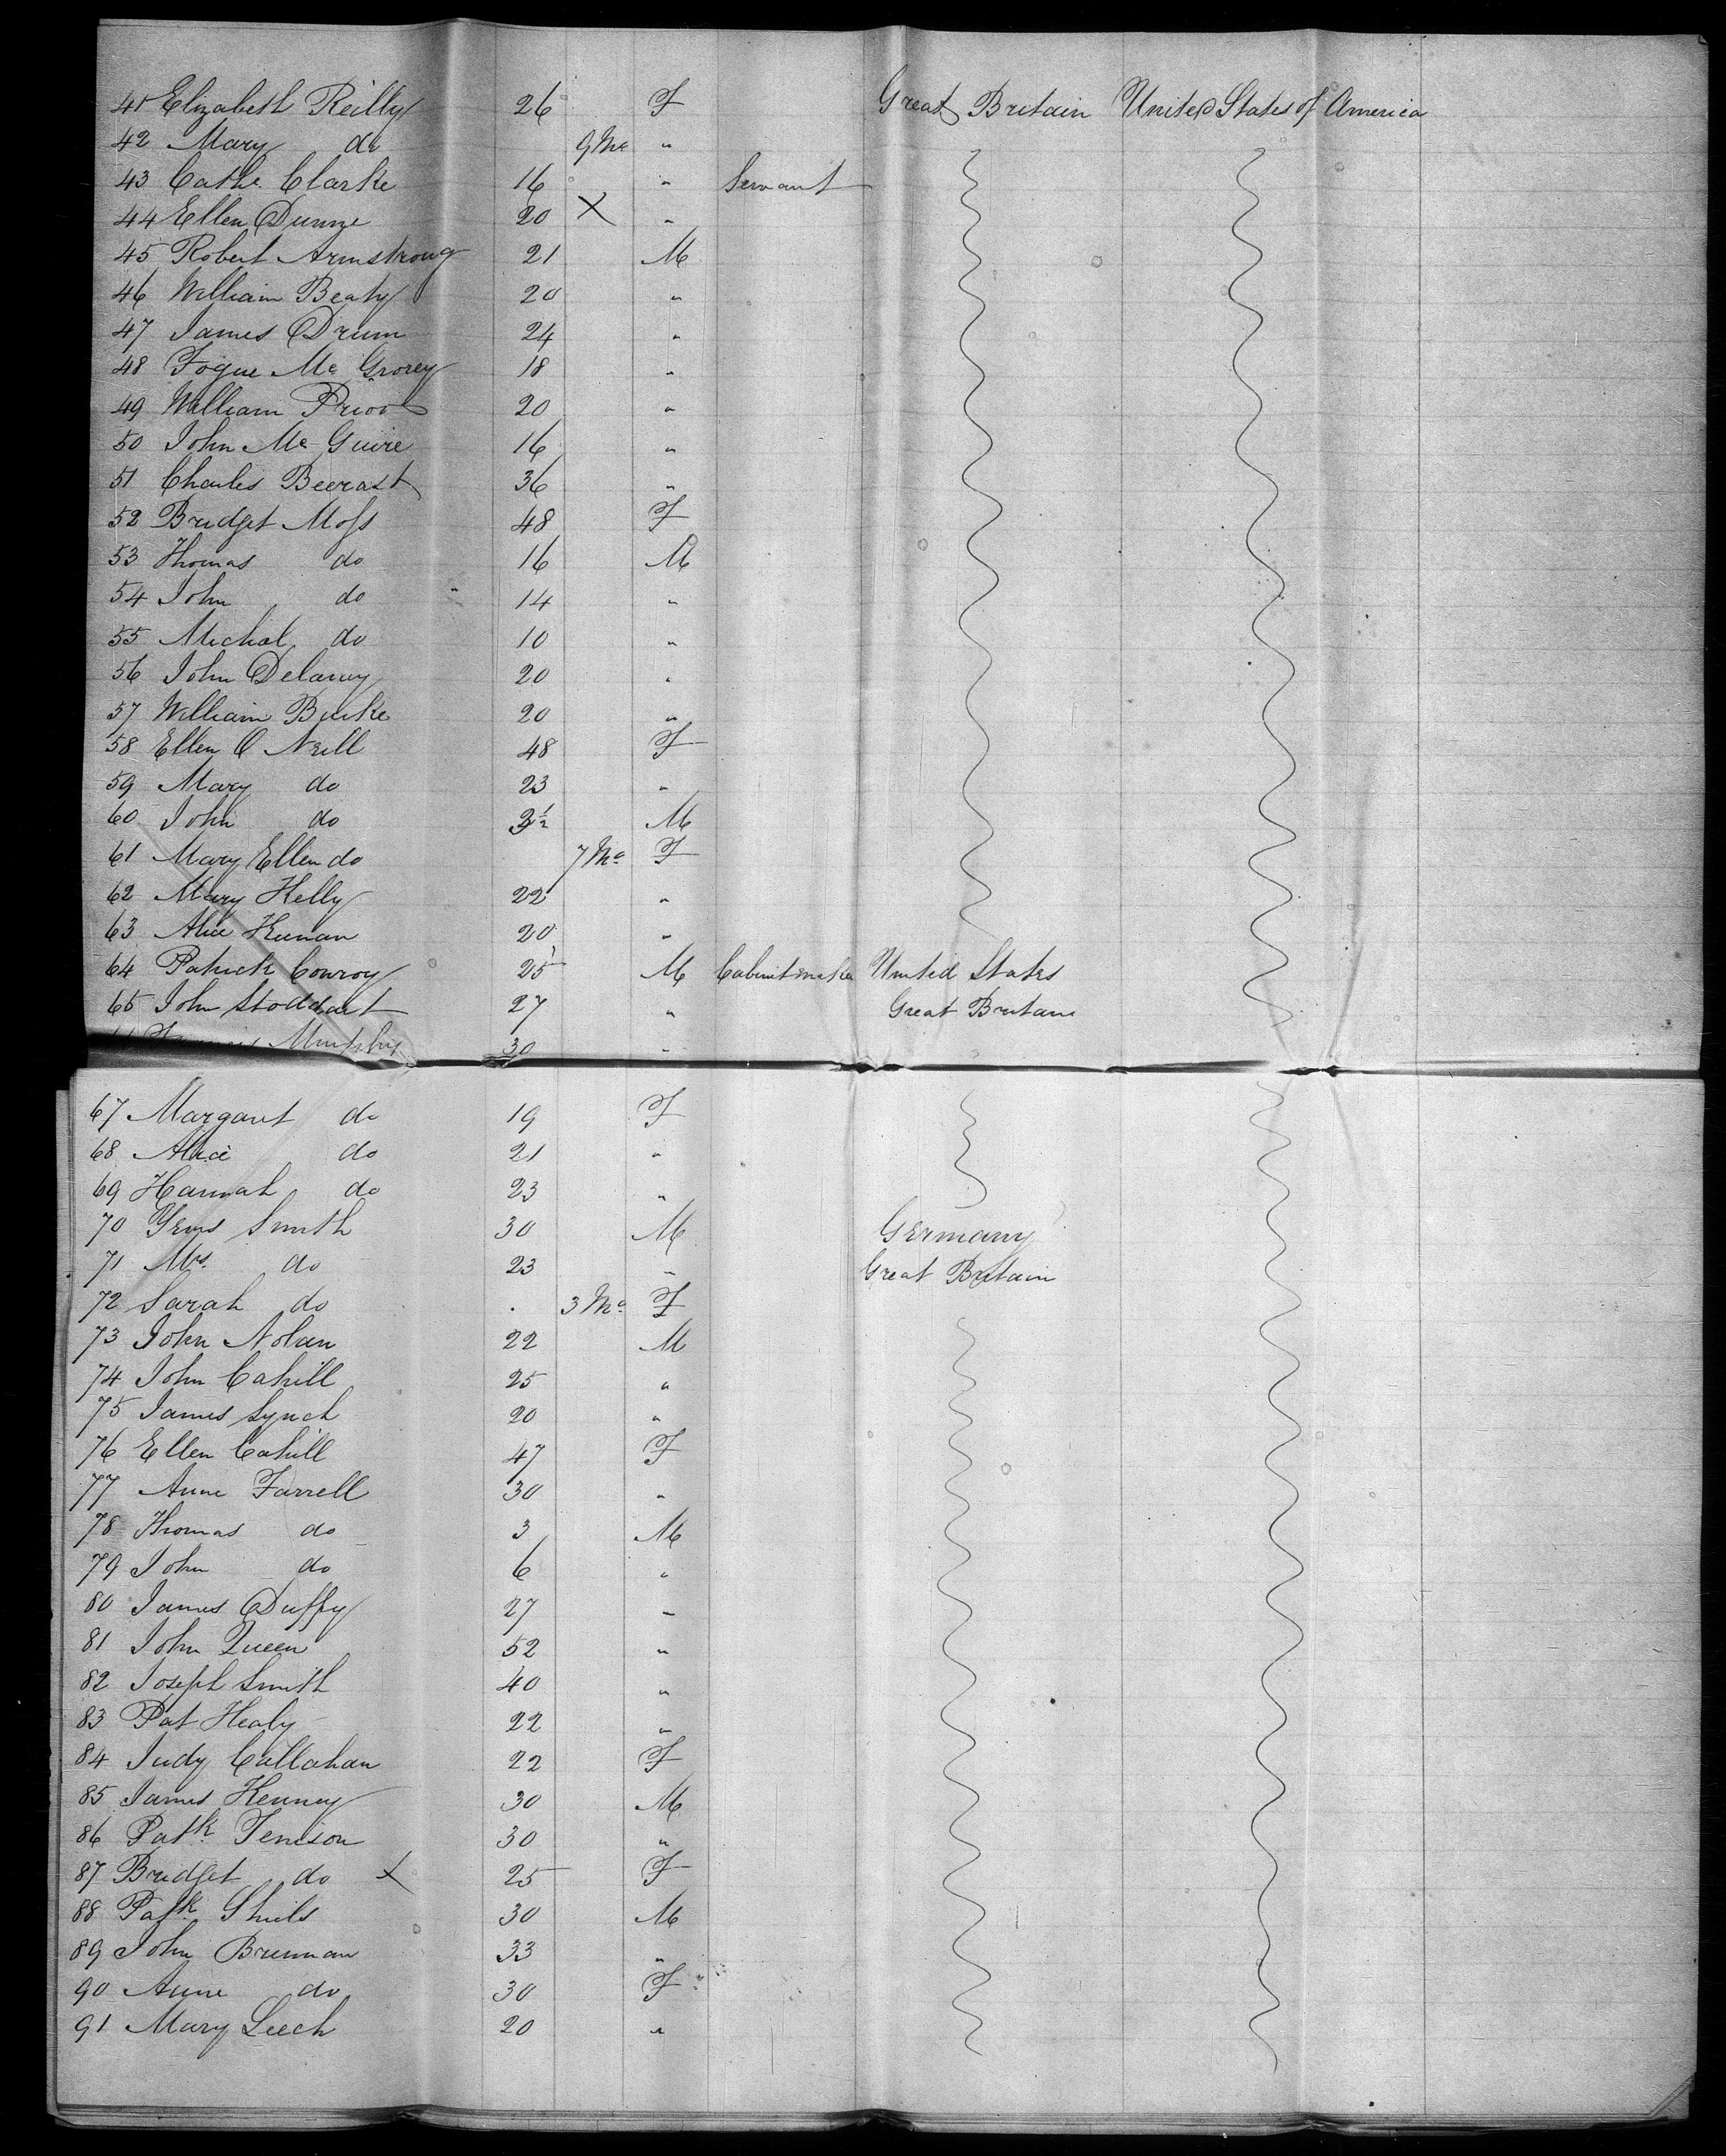 41 Elizabeth Reilly 26 F Great Britain United States of America
42 Mary do 9 Mo "
43 Cathe. Clarke 16 " Servant
44 Ellen Dunne 20 X "
45 Robert Armstrong 21 M
46 William Beaty 20 "
47 James Drum 24 "
48 Fogue Mc Grorey 18 "
49 William Prior 20 "
50 John Mc Guire 16 "
51 Charles 36 "
52 Bridget Moss 48 F
53 Thomas do 16 M
54 John do 14 "
55 Michal do 10 "
56 John Delaney 20 "
57 William Burke 20 "
58 Ellen O Neill 48 F
59 Mary do 23 "
60 John do M
61 Mary Ellen do 7 Mo F
62 Mary Kelly 22 "
63 Alice Keenan 20 "
64 Patrick Conroy 25 M Cabinetmaker United States
65 John Stoddart 27 " Great Britain
Murphy 30 "
67 Margaret do 19 F
68 Alice do 21 "
69 Hannah do 23 "
70 Smith 30 M Germany
71 Mrs. do 23 " Great Britain
72 Sarah do . 3 Mo F
73 John Nolan 22 M
74 John Cahill 25 "
75 James Lynch 20 "
76 Ellen Cahill 47 F
77 Anne Farrell 30 "
78 Thomas do 3 M
79 John do 6 "
80 James Duffy 27 "
81 John Queen 52 "
82 Joseph Smith 40 "
83 Pat Healy 22 "
84 Judy Callahan 22 F
85 James Kenney 30 M
86 Patk. Tenison 30 "
87 Bridget do X 25 F
88 Patk. Shiels 30 M
89 John Brennan 33 "
90 Anne do 30 F
91 Mary Leech 20 "